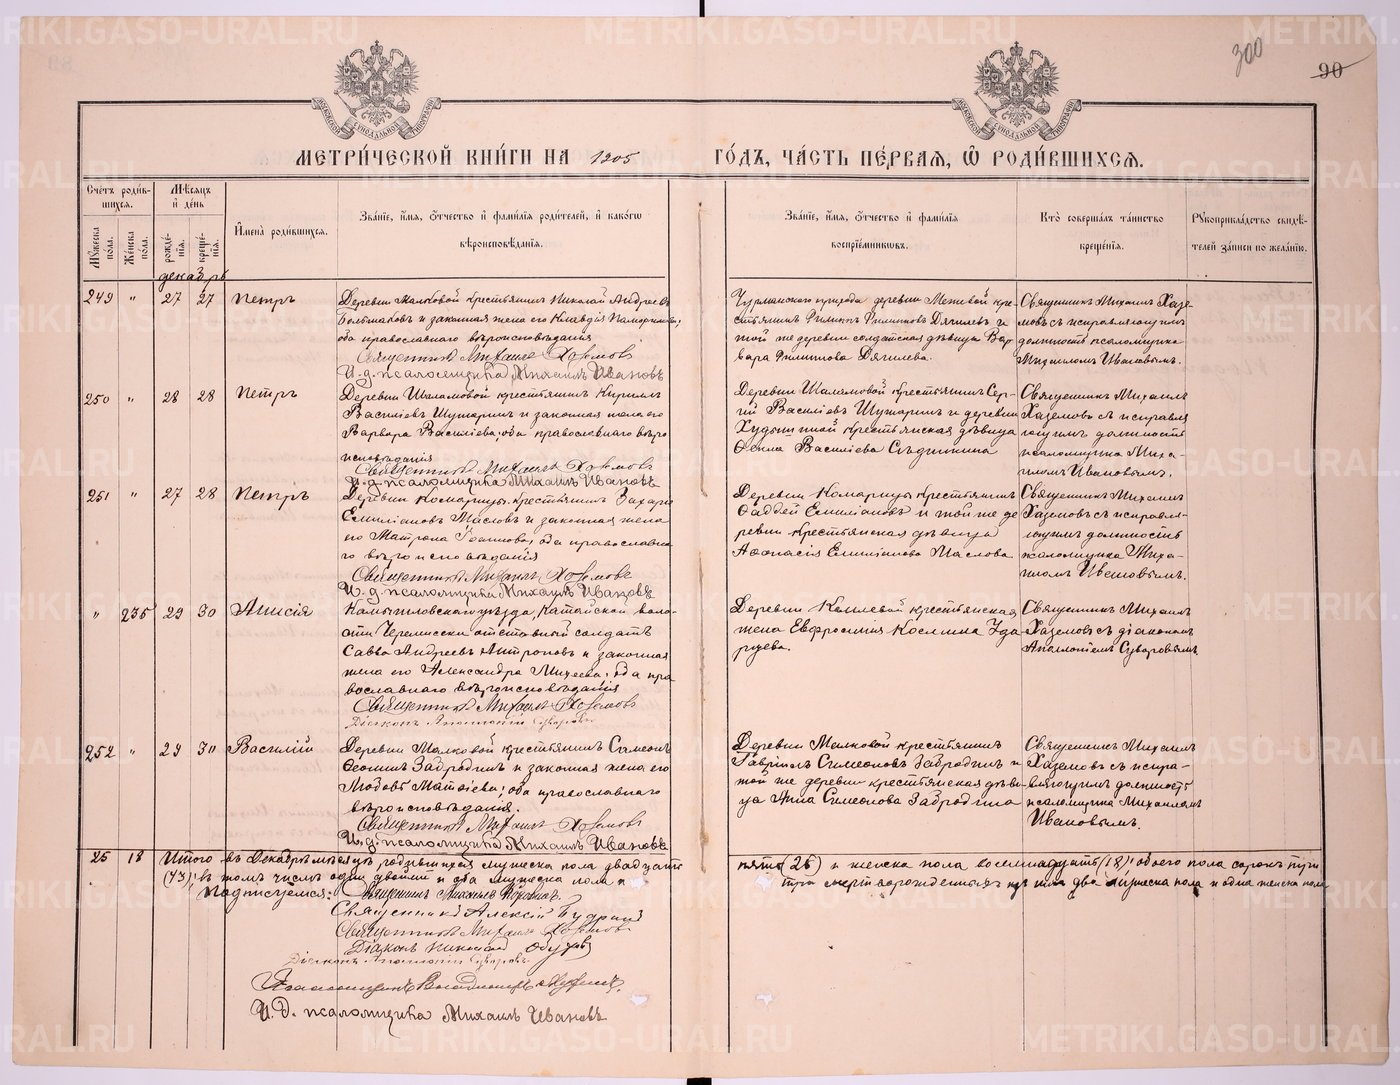 300
90
МЕТРИ́ЧЕСКОЙ КНИ́ГИ НА 1905 ГО́ДЪ, ЧА́СТЬ ПЕ́РВАЯ, Ѽ РОДИ́ВШИХСЯ.
Сче́тъ роди́вшихся.
Мѣ́сяцъ и҆ де́нь
И҆мена̀ роди́вшихся.
Зва́нїе, и҆́мя, ѻ҆́тчество и҆ фами́лїя роди́телей, и҆ како́гѡ вѣроисповѣ́данїя.
Зва́нїе, и҆́мя, ѻ҆́тчество и҆ фами́лїя воспрїе́мниковъ.
Кто̀ соверша́лъ та́инство креще́нїя.
Рꙋкоприкла́дство свидѣ́телей за́писи по жела́нїю.
Мꙋ́жеска по́ла.
Же́нска по́ла.
рожде́нїя.
креще́нїя.
декабрь
249 " 27 27 Петръ
Деревни Малковой крестьянинъ Николай Андреевъ
и законная жена его Клавдія
оба православнаго вѣроисповѣданія
Священникъ Михаилъ Хаземовъ
И. д. псаломщика Михаилъ Ивановъ
прихода деревни крестьянинъ Филиппъ Филипповъ Дягилевъ и
той же деревни солдатская дѣвица Варвара Филиппова Дягилева.
Священникъ Михаилъ Хаземовъ съ исправляющимъ
должность псаломщика
Михаиломъ Ивановымъ.
250 " 28 28 Петръ
Деревни Шаламовой крестьянинъ Кириллъ
Василіевъ и законная жена его
Варвара Василіева; оба православнаго вѣроисповѣданія
Священникъ Михаилъ Хаземовъ
И. д. псаломщика Михаилъ Ивановъ
Деревни Шаламовой крестьянинъ Сергій Василіевъ и деревни
крестьянская дѣвица
Ѳекла Василіева
Священникъ Михаилъ
Хаземовъ съ исправляющимъ должность
псаломщика Михаиломъ Ивановымъ.
251 " 27 28 Петръ
Деревни Комарицы крестьянинъ Захарій
Емиліановъ Масловъ и законная жена
его Матрона Іоаннова; оба православнаго вѣроисповѣданія
Священникъ Михаилъ Хаземовъ
И. д. псаломщика Михаилъ Ивановъ
Деревни Комарицы крестьянинъ
Ѳаддей Емиліановъ и той же деревни крестьянская дѣвица
Аѳанасія Емиліанова Маслова
Священникъ Михаилъ
Хаземовъ съ исправляющимъ должность
псаломщика Михаиломъ Ивановымъ.
" 235 29 30 Анисія
Камышловскаго уѣзда, Катайской волости Черемисски отставный солдатъ
Савва Андреевъ Антроповъ и законная
жена его Александра Михеева; оба православнаго вѣроисповѣданія
Священникъ Михаилъ Хаземовъ
Діаконъ Аполлоній Суворовъ
Деревни крестьянская
жена Евфросинія
Священникъ Михаилъ
Хаземовъ съ діакономъ
Аполлоніемъ Суворовымъ
252 " 29 30 Василій
Деревни Малковой крестьянинъ Симеонъ
Забродинъ и законная жена его
Любовь Матѳіева; оба православнаго
вѣроисповѣданія.
Священникъ Михаилъ Хаземовъ
И. д. псаломщика Михаилъ Ивановъ
Деревни Малковой крестьянинъ
Гавріилъ Симеоновъ Забродинъ и
той же деревни крестьянская дѣвица Анна Симеонова Забродина
Священникъ Михаилъ
Хаземовъ съ исправляющимъ должность
псаломщика Михаиломъ
Ивановымъ.
25 18 Итого въ Декабрѣ мѣсяцѣ родившихся мужеска пола двадцать пять (25) и женска пола восемнадцать (18); обоего пола сорокъ три
(43); въ томъ числѣ одни двойни и оба мужеска пола и три мертворожденныхъ два мужеска пола и одна женска пола
Подписуемся: Священникъ Михаилъ
Священникъ Алексій
Священникъ Михаилъ Хаземовъ
Діаконъ Николай
Діаконъ Аполлоній Суворовъ
Псаломщикъ Владиміръ
И. д. псаломщика Михаилъ Ивановъ
METRIKI.GASO-URAL.RU